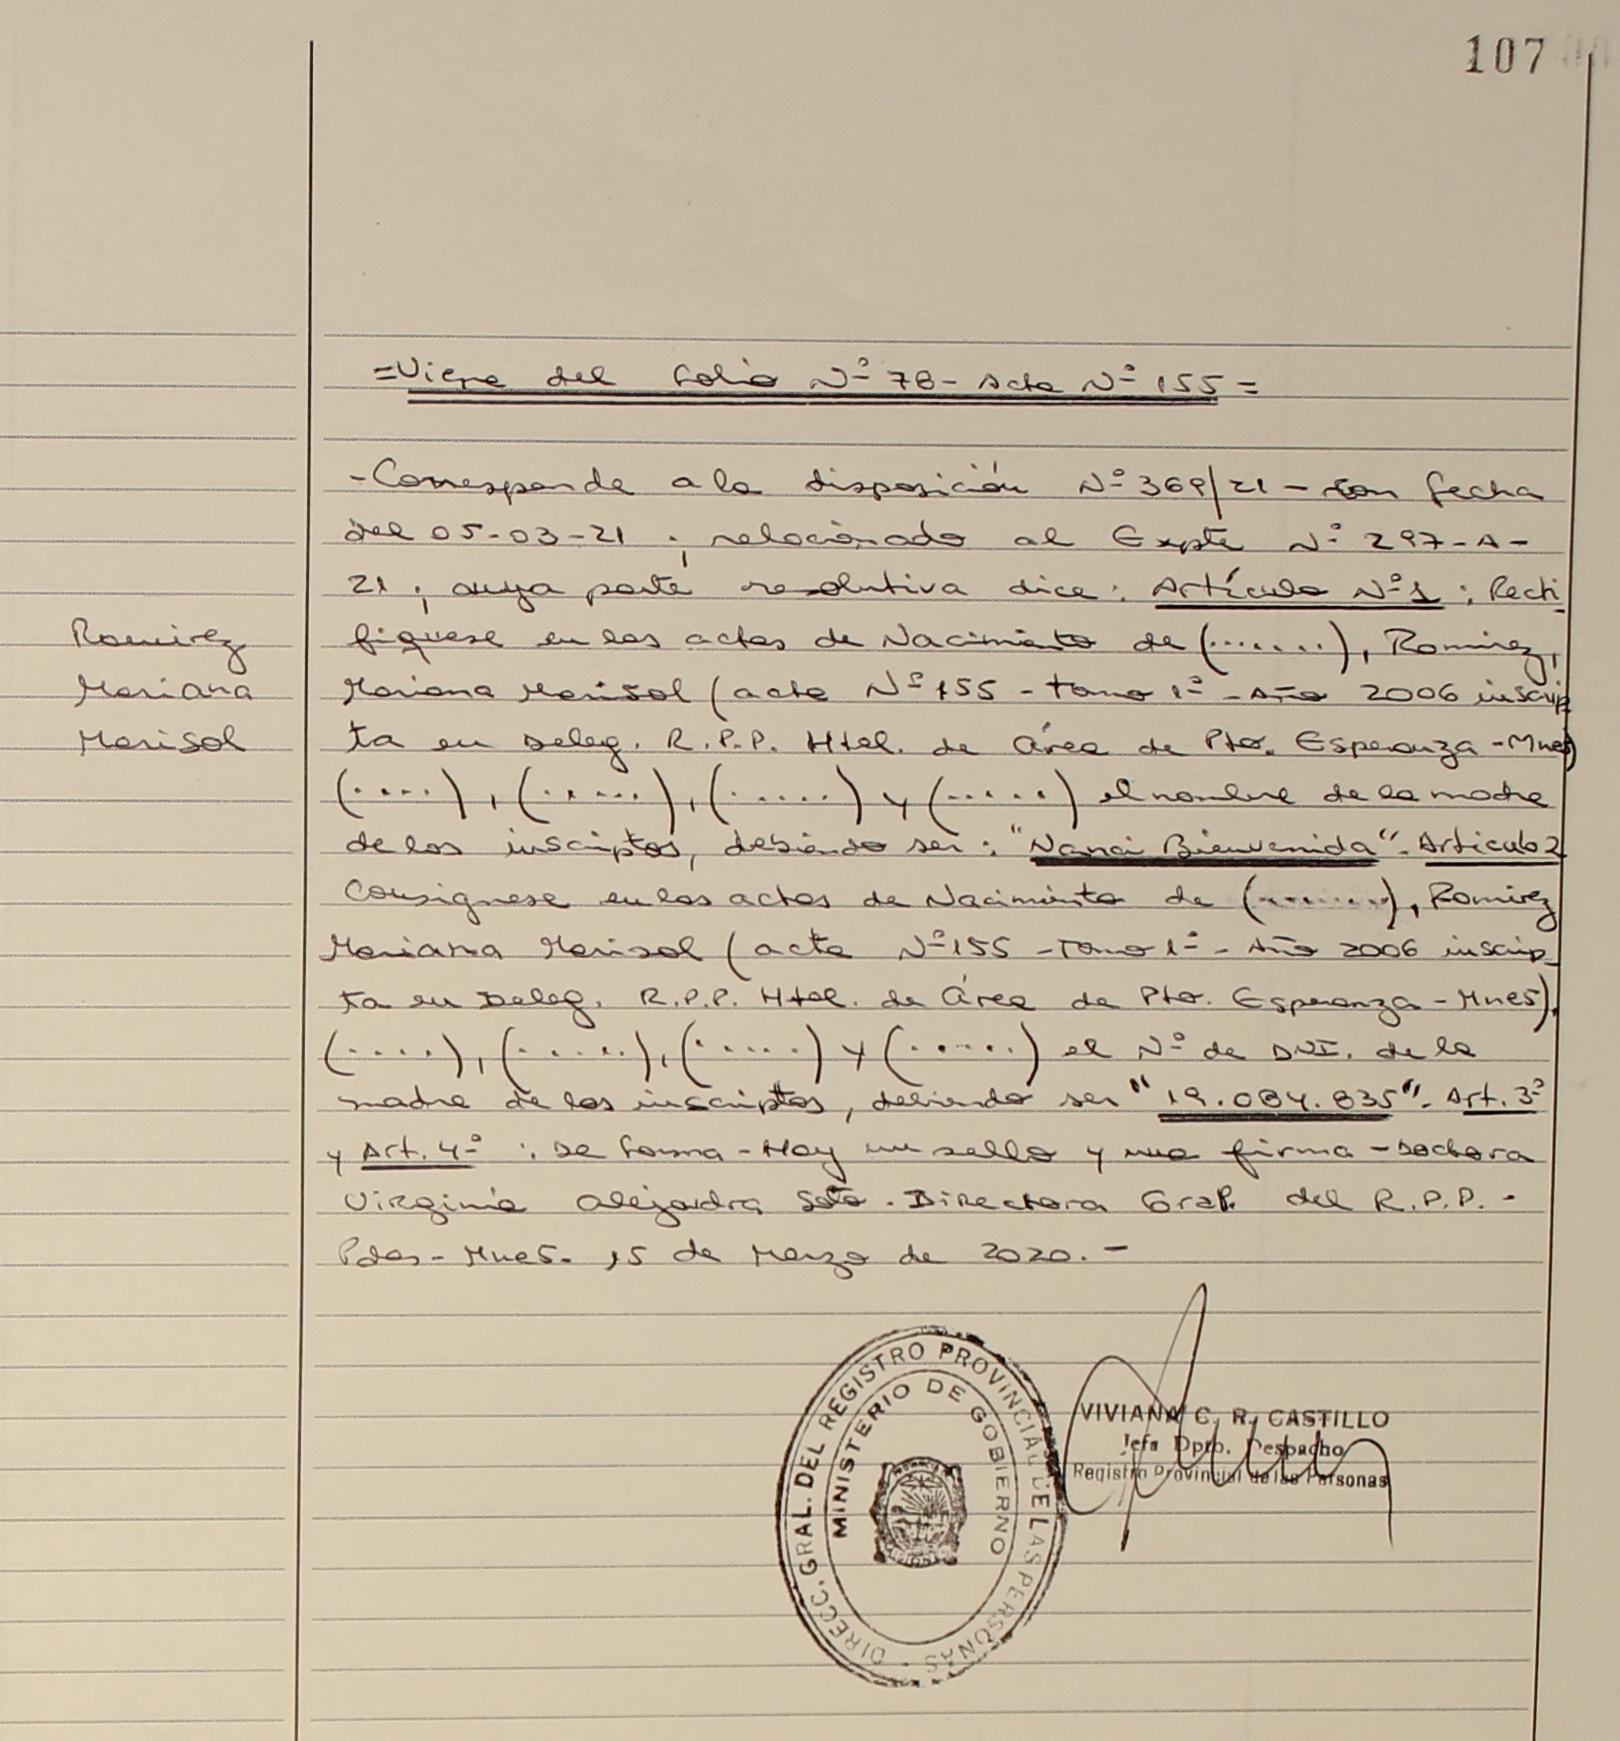 107
=Viene del folio Nº 78- Acta Nº 155=
-Corresponde a la disposición Nº 369/21 - con fecha
del 05-03-21 ; relacionado al Expte Nº 297-A-
21 ; cuya parte resolutiva dice: Artículo Nº1 : Recti_
Ramirez
Mariana
Marisol
fiquese en las actas de Nacimiento de (.......), Ramirez,
Mariana Marisol (acta Nº 155 - tomo 1º - Año 2006 inscrip
ta en Deleg. R.P.P. Htal. de Área de Pto. Esperanza -Mnes)
(....), (......), (......) y (.....) el nombre de la madre
de los inscriptos, debiendo ser: "Nanci Bienvenida". Articulo 2
Consignese en las actas de Nacimiento de (.......), Ramirez
Mariana Marisol (acta Nº 155 - Tomo 1º - Año 2006 inscrip_
ta en Deleg. R.P.P. Htal. de Área de Pto. Esperanza - Mnes),
(....), (.....), (.....) y (.....) el Nº de DNI. de la
madre de los inscriptos, debiendo ser "19.084.835". Art. 3º
y Art. 4º : De forma - Hay un sello y una firma - Doctora
Virginia Alejandra Soto. Directora Gral. del R.P.P. -
Pdas - Mnes. 15 de Marzo de 2020.-
DIRECC. GRAL. DEL REGISTRO PROVINCIAL DE LAS PERSONAS
MINISTERIO DE GOBIERNO
VIVIANA C. R. CASTILLO
Jefa Dpto. Despacho
Registro Provincial de las Personas